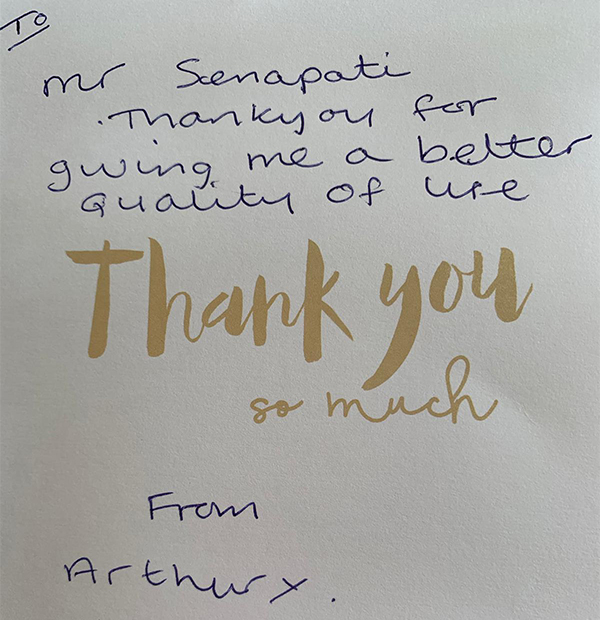 To
Mr Senapati
. Thankyou for
giving me a better
quality of life
Thank you
so much
From
Arthur x.